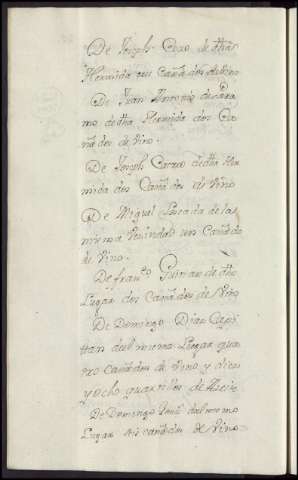 De Joseph Coxo de dha
Hermida un Cañado de vino
De Juan Antonio de
mo de dha Hermida dos Ca
ñados de Vino.
De Joseph de dha Her
mida dos Cañados de Vino
De Miguel de la
misma Vecindad un Cañado
de Vino.
De Franco. Guzman de dho
Lugar dos Cañados de Vino
De Domingo Diaz Capi
tan del mismo Lugar qua
tro Cañados de Vino y diez
y ocho quartillos de Aceite
De Domingo del mismo
Lugar seis cañados de Vino